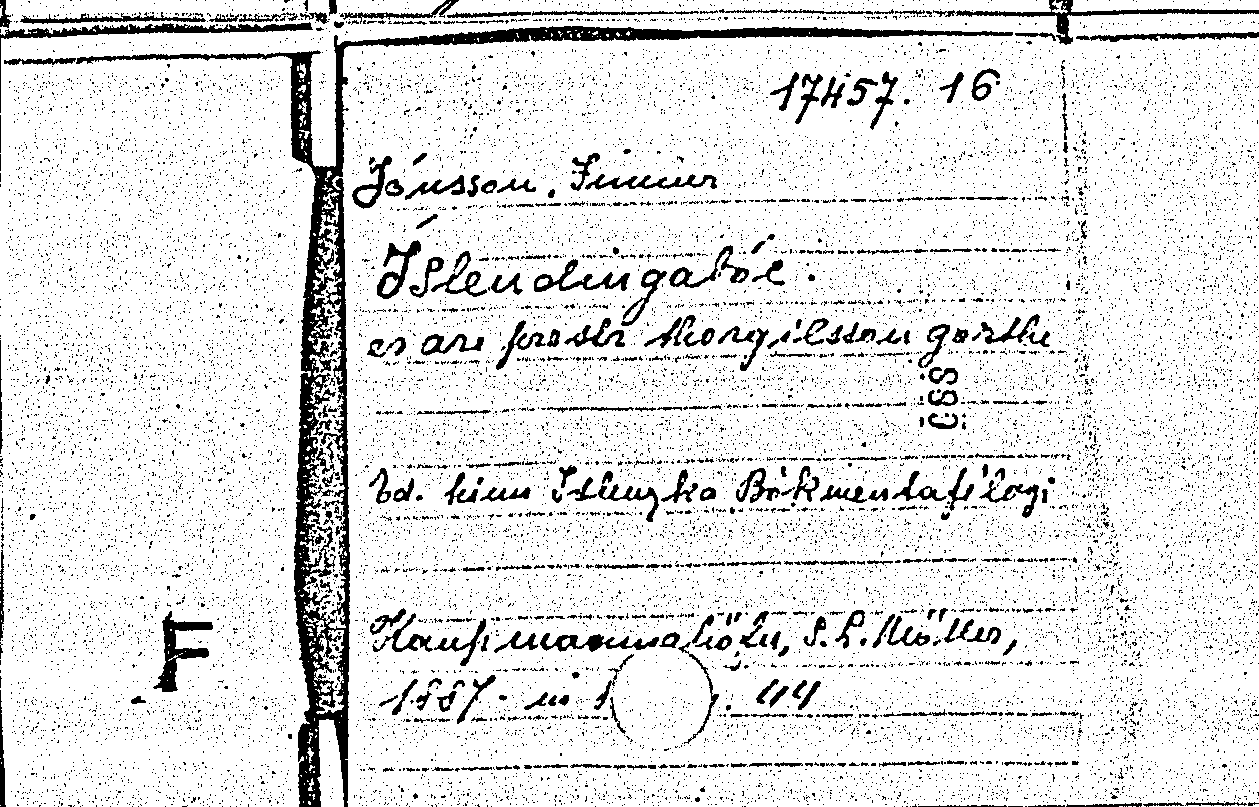 17457. 16
Jónsson, Finnur
Íslendingabók.
es are prestr thorgilsson gørthe
C6S
Ed. hinu Islenzka Bókmentafélagi
Kaupmannahöfn, S. L. Möller,
1887. in . 44
F